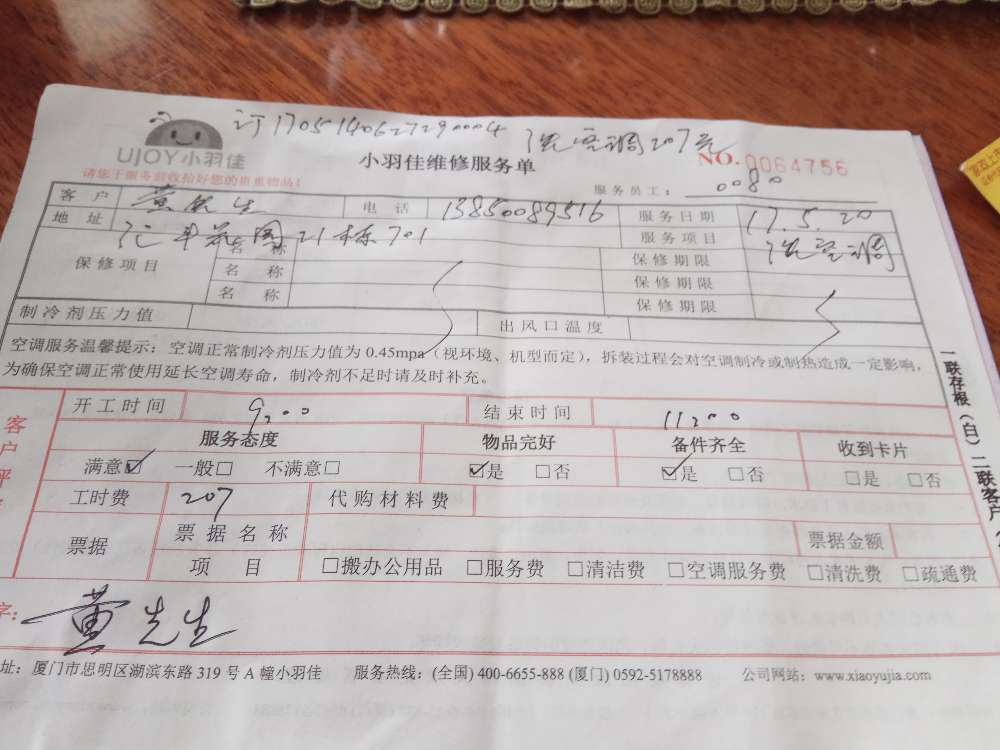 订17051406272290004 洗空调207元
UJOY小羽佳
小羽佳维修服务单
NO.0064756
请您于服务前收拾好您的贵重物品！
服务员工：0080
客户 黄先生 电话 13850089516 服务日期 17.5.20
地址 21栋701 服务项目 洗空调
保修项目 名称 保修期限
名称 保修期限
名称 保修期限
制冷剂压力值 出风口温度
空调服务温馨提示：空调正常制冷剂压力值为0.45mpa（视环境、机型而定），拆装过程会对空调制冷或制热造成一定影响，
为确保空调正常使用延长空调寿命，制冷剂不足时请及时补充。
一联存根（白）二联客户
客户评
开工时间 9:00 结束时间 11:00
服务态度 物品完好 备件齐全 收到卡片
满意☑ 一般□ 不满意□ ☑是 □否 ☑是 □否 □是 □否
工时费 207 代购材料费
票据 票据名称 票据金额
项目 □搬办公用品 □服务费 □清洁费 □空调服务费 □清洗费 □疏通费
字：黄先生
址：厦门市思明区湖滨东路319号A幢小羽佳 服务热线：(全国) 400-6655-888 (厦门) 0592-5178888 公司网站：www.xiaoyujia.com